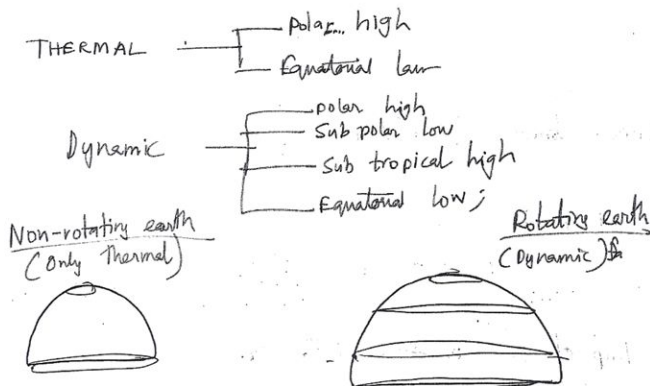 THERMAL
Polar... high
Equatorial low
Dynamic
polar high
Sub polar low
Sub tropical high
Equatorial low ;
Non-rotating earth
(Only thermal)
Rotating earth
(Dynamic)